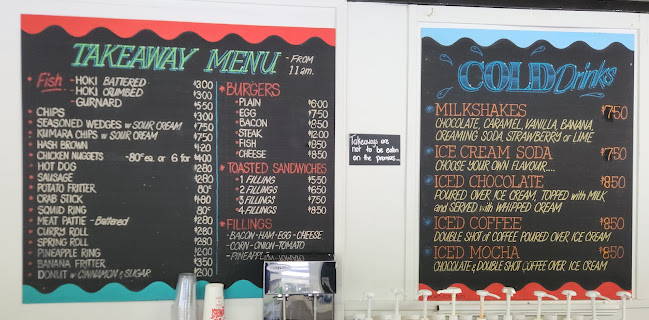 TAKEAWAY MENU - FROM 11am.
Fish - HOKI BATTERED $3.00
- HOKI CRUMBED $3.00
- GURNARD $5.50
CHIPS $3.00
SEASONED WEDGES w SOUR CREAM $7.50
KUMARA CHIPS w SOUR CREAM $7.50
HASH BROWN $1.20
CHICKEN NUGGETS -80¢ ea. or 6 for $4.00
HOT DOG $2.80
SAUSAGE $2.80
POTATO FRITTER 80¢
CRAB STICK $1.80
SQUID RING 80¢
MEAT PATTIE - Battered $2.80
CURRY ROLL $2.80
SPRING ROLL $2.80
PINEAPPLE RING $2.00
BANANA FRITTER $3.50
DONUT w CINNAMON & SUGAR $2.00
BURGERS
PLAIN 6.00
EGG $7.50
BACON $8.50
STEAK
FISH $8.50
CHEESE $8.50
TOASTED SANDWICHES
1 FILLING $5.50
2 FILLINGS $6.50
3 FILLINGS $7.50
4 FILLINGS $8.50
FILLINGS
- BACON - HAM - EGG - CHEESE
- CORN - ONION - TOMATO
- PINEAPPLE
Takeaways are
not to be eaten
on the premises...
COLD Drinks
MILKSHAKES $7.50
CHOCOLATE, CARAMEL, VANILLA, BANANA,
CREAMING SODA, STRAWBERRY or LIME
ICE CREAM SODA $7.50
CHOOSE YOUR OWN FLAVOUR....
ICED CHOCOLATE $8.50
POURED OVER ICE CREAM, TOPPED with MILK
and SERVED with WHIPPED CREAM
ICED COFFEE $8.50
DOUBLE SHOT of COFFEE POURED OVER ICE CREAM
ICED MOCHA $8.50
CHOCOLATE & DOUBLE SHOT COFFEE OVER ICE CREAM